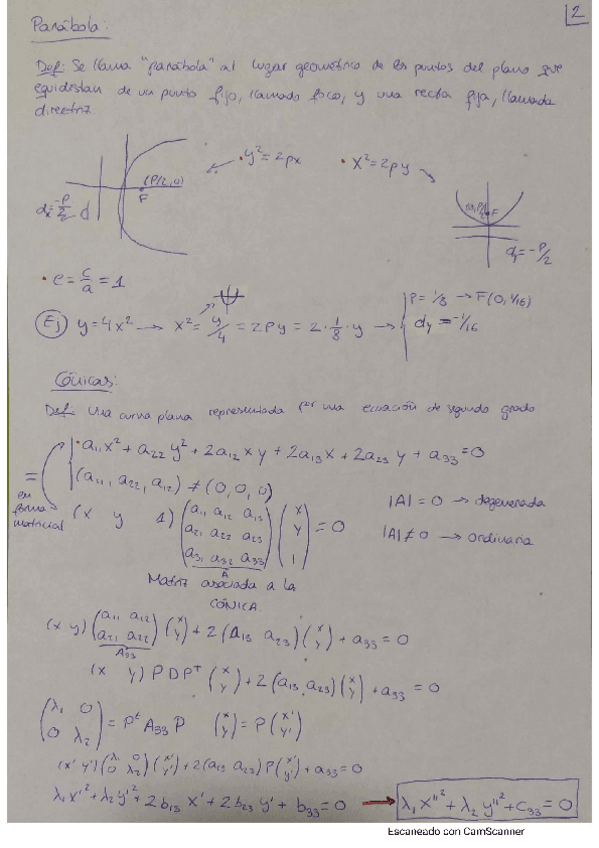 2
Parábola:
Def: Se llama "parábola" al lugar geométrico de los puntos del plano que
equidistan de un punto fijo, llamado foco, y una recta fija, llamada
directriz.
• y² = 2px • x² = 2py
(P/2, 0)
F
d
F
dy = -P/2
• e = c/a = 1
Ej y = 4x² → x² = y/4 = 2py = 2 · 1/8 · y → { P = 1/8 → F(0, 1/16)
dy = -1/16
Cónicas:
Def: Una curva plana representada por una ecuación de segundo grado
• a₁₁x² + a₂₂y² + 2a₁₂xy + 2a₁₃x + 2a₂₃y + a₃₃ = 0
(a₁₁, a₂₂, a₁₂) ≠ (0, 0, 0)
=
en forma matricial
(x y 1) (a₁₁ a₁₂ a₁₃ / a₂₁ a₂₂ a₂₃ / a₃₁ a₃₂ a₃₃) (x / y / 1) = 0
A
|A| = 0 → degenerada
|A| ≠ 0 → ordinaria
Matriz asociada a la
CÓNICA
(x y) (a₁₁ a₁₂ / a₂₁ a₂₂) (x / y) + 2(a₁₃ a₂₃) (x / y) + a₃₃ = 0
A₃₃
(x y) P D Pᵀ (x / y) + 2(a₁₃, a₂₃) (x / y) + a₃₃ = 0
(λ₁ 0 / 0 λ₂) = Pᵗ A₃₃ P (x / y) = P (x' / y')
(x' y') (λ₁ 0 / 0 λ₂) (x' / y') + 2(a₁₃ a₂₃) P (x' / y') + a₃₃ = 0
λ₁x'² + λ₂y'² + 2b₁₃x' + 2b₂₃y' + b₃₃ = 0 → λ₁x''² + λ₂y''² + c₃₃ = 0
Escaneado con CamScanner